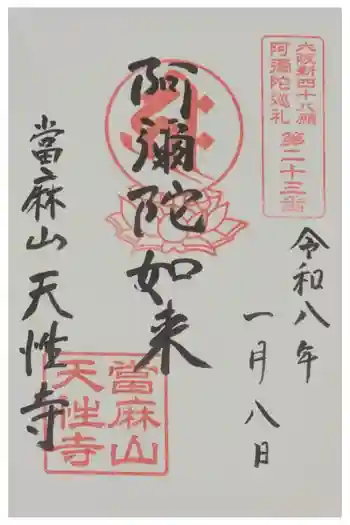 大阪新四十八願
阿彌陀巡礼
第二十三番
令和八年
一月八日
阿彌陀如来
當麻山 天性寺
當麻山
天性寺